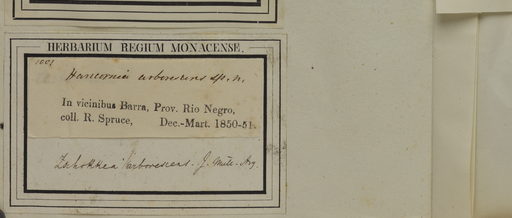 HERBARIUM REGIUM MONACENSE.
1001
Hancornia arborescens sp. n.
In vicinibus Barra, Prov. Rio Negro,
coll. R. Spruce, Dec.-Mart. 1850-51.
Zschokkea arborescens. J. Müll. Arg